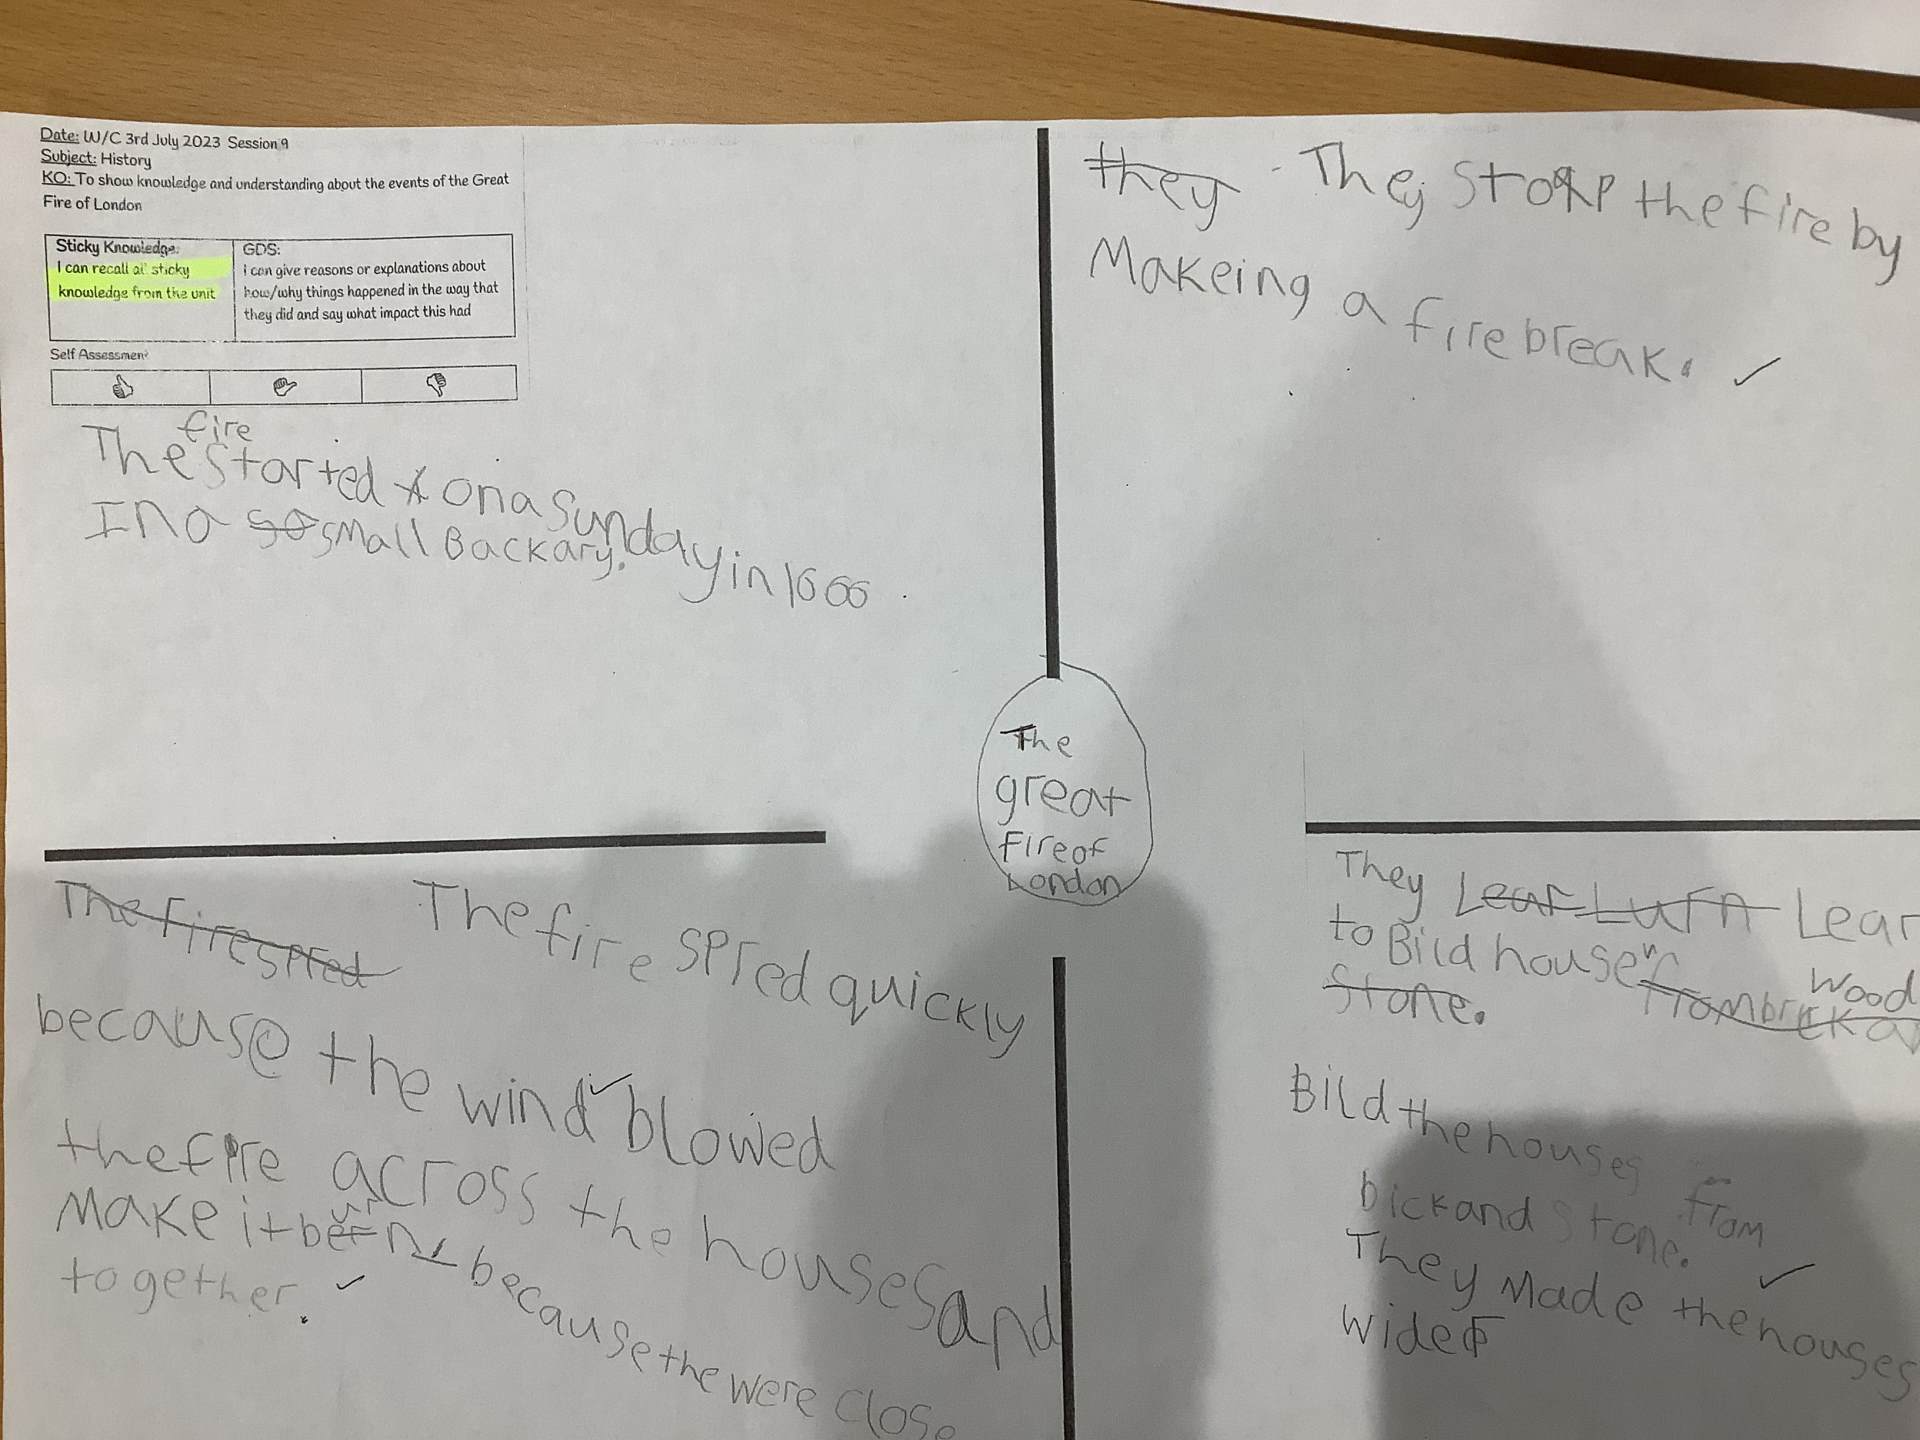 Date: W/C 3rd July 2023 Session 9
Subject: History
KO: To show knowledge and understanding about the events of the Great
Fire of London
Sticky Knowledge:
I can recall all sticky
knowledge from the unit
GDS:
I can give reasons or explanations about
how/why things happened in the way that
they did and say what impact this had
Self Assessment
fire
The started on a Sunday in 1666
In a so small Backary.
they They stopp the fire by
Makeing a fire break.
The
great
Fire of
London
The fire spred The fire spred quickly
because the wind blowed
the fire across the houses and
Make it burn because the were close
together.
They Lear Lurn Lear
to Bild house from brick
wood
Stone.
Bild the houses
from
bick and Stone.
They Made the houses
wider